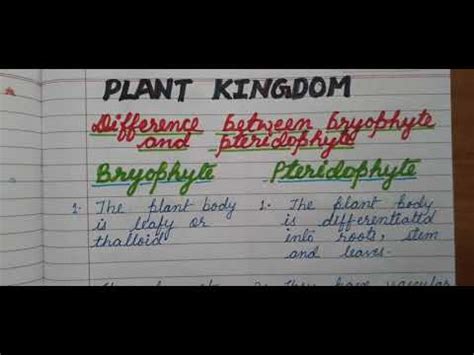 PLANT KINGDOM
Difference between bryophyte
and pteridophyte
Bryophyte Pteridophyte
1. The plant body
is leafy or
thalloid
1. The plant body
is differentiatd
into roots, stem
and leaves.
2. They have vascular